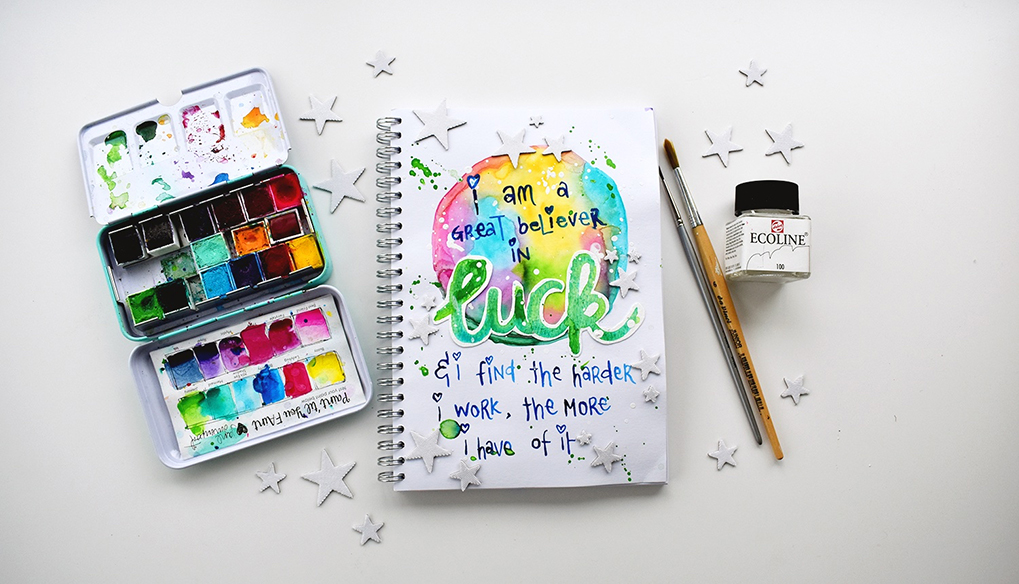 i am a
GREAT beLiEVER
iN
luck
& i find the hARDER
i WORK, the MORE
i have of it
ECOLINE
100
Paint 'til You FAINT